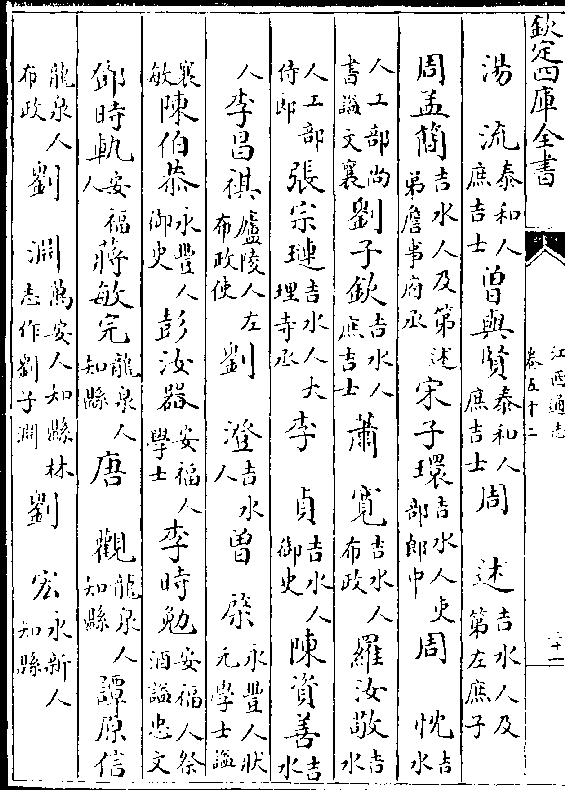 欽定四庫全書
江西通志
卷五十二
湯流泰和人庶吉士曾與賢泰和人庶吉士周述吉水人及第左庶子
周孟簡吉水人及第述弟詹事府丞宋子環吉水人吏部郎中周忱吉水
人工部尚書諡文襄劉子欽吉水人庶吉士蕭寬吉水人布政羅汝敬吉水
人工部侍郎張宗璉吉水人大理寺丞李貞吉水人御史陳資善吉水
人李昌祺廬陵人左布政使劉澄吉水人曾棨永豐人狀元學士諡
襄敏陳伯恭永豐人御史彭汝器安福人學士李時勉安福人祭酒諡忠文
鄧時軌安福人蔣敏完龍泉人知縣唐觀龍泉人知縣譚原信
龍泉人布政劉淵萬安人知縣林志作劉子淵劉宏永新人知縣